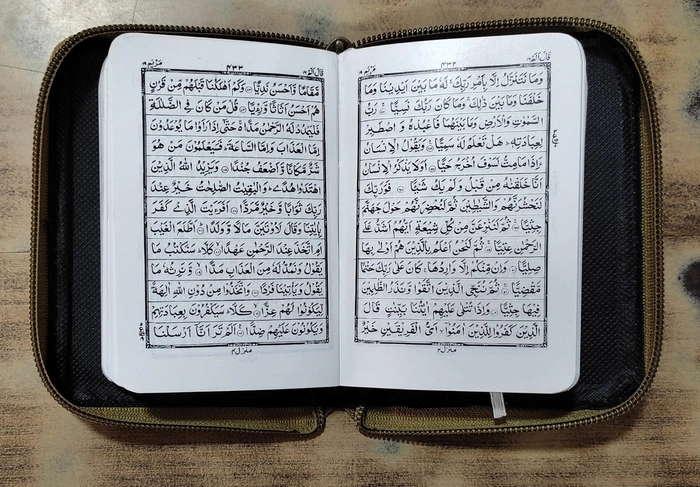 قَالَ اَلَمْ ١٦ ٤٣٢ مَرْيَم ١٩
وَمَا نَتَنَزَّلُ اِلَّا بِاَمْرِ رَبِّكَ ۚ لَهٗ مَا بَيْنَ اَيْدِيْنَا وَمَا
خَلْفَنَا وَمَا بَيْنَ ذٰلِكَ ۚ وَمَا كَانَ رَبُّكَ نَسِيًّا ۝ رَبُّ
السَّمٰوٰتِ وَالْاَرْضِ وَمَا بَيْنَهُمَا فَاعْبُدْهُ وَ اصْطَبِرْ
لِعِبَادَتِهٖ ؕ هَلْ تَعْلَمُ لَهٗ سَمِيًّا ۝ وَيَقُوْلُ الْاِنْسَانُ
ءَاِذَا مَا مِتُّ لَسَوْفَ اُخْرَجُ حَيًّا ۝ اَوَلَا يَذْكُرُ الْاِنْسَانُ
اَنَّا خَلَقْنٰهُ مِنْ قَبْلُ وَلَمْ يَكُ شَيْئًا ۝ فَوَرَبِّكَ
لَنَحْشُرَنَّهُمْ وَالشَّيٰطِيْنَ ثُمَّ لَنُحْضِرَنَّهُمْ حَوْلَ جَهَنَّمَ
جِثِيًّا ۝ ثُمَّ لَنَنْزِعَنَّ مِنْ كُلِّ شِيْعَةٍ اَيُّهُمْ اَشَدُّ عَلَى
الرَّحْمٰنِ عِتِيًّا ۝ ثُمَّ لَنَحْنُ اَعْلَمُ بِالَّذِيْنَ هُمْ اَوْلٰى بِهَا
صِلِيًّا ۝ وَاِنْ مِّنْكُمْ اِلَّا وَارِدُهَا ۚ كَانَ عَلٰى رَبِّكَ حَتْمًا
مَّقْضِيًّا ۝ ثُمَّ نُنَجِّى الَّذِيْنَ اتَّقَوْا وَّنَذَرُ الظّٰلِمِيْنَ
فِيْهَا جِثِيًّا ۝ وَاِذَا تُتْلٰى عَلَيْهِمْ اٰيٰتُنَا بَيِّنٰتٍ قَالَ
الَّذِيْنَ كَفَرُوْا لِلَّذِيْنَ اٰمَنُوْٓا ۙ اَىُّ الْفَرِيْقَيْنِ خَيْرٌ
منزل ٤
قَالَ اَلَمْ ١٦ ٤٣٣ مَرْيَم ١٩
مَّقَامًا وَّاَحْسَنُ نَدِيًّا ۝ وَكَمْ اَهْلَكْنَا قَبْلَهُمْ مِّنْ قَرْنٍ
هُمْ اَحْسَنُ اَثَاثًا وَّرِءْيًا ۝ قُلْ مَنْ كَانَ فِى الضَّلٰلَةِ
فَلْيَمْدُدْ لَهُ الرَّحْمٰنُ مَدًّا ۚ حَتّٰٓى اِذَا رَاَوْا مَا يُوْعَدُوْنَ
اِمَّا الْعَذَابَ وَاِمَّا السَّاعَةَ ؕ فَسَيَعْلَمُوْنَ مَنْ هُوَ
شَرٌّ مَّكَانًا وَّاَضْعَفُ جُنْدًا ۝ وَيَزِيْدُ اللّٰهُ الَّذِيْنَ
اهْتَدَوْا هُدًى ؕ وَالْبٰقِيٰتُ الصّٰلِحٰتُ خَيْرٌ عِنْدَ
رَبِّكَ ثَوَابًا وَّخَيْرٌ مَّرَدًّا ۝ اَفَرَءَيْتَ الَّذِىْ كَفَرَ
بِاٰيٰتِنَا وَقَالَ لَاُوْتَيَنَّ مَالًا وَّوَلَدًا ۝ اَطَّلَعَ الْغَيْبَ
اَمِ اتَّخَذَ عِنْدَ الرَّحْمٰنِ عَهْدًا ۝ كَلَّا ؕ سَنَكْتُبُ مَا
يَقُوْلُ وَنَمُدُّ لَهٗ مِنَ الْعَذَابِ مَدًّا ۝ وَّنَرِثُهٗ مَا
يَقُوْلُ وَيَاْتِيْنَا فَرْدًا ۝ وَاتَّخَذُوْا مِنْ دُوْنِ اللّٰهِ اٰلِهَةً
لِّيَكُوْنُوْا لَهُمْ عِزًّا ۝ كَلَّا ؕ سَيَكْفُرُوْنَ بِعِبَادَتِهِمْ
وَيَكُوْنُوْنَ عَلَيْهِمْ ضِدًّا ۝ اَلَمْ تَرَ اَنَّآ اَرْسَلْنَا
منزل ٤